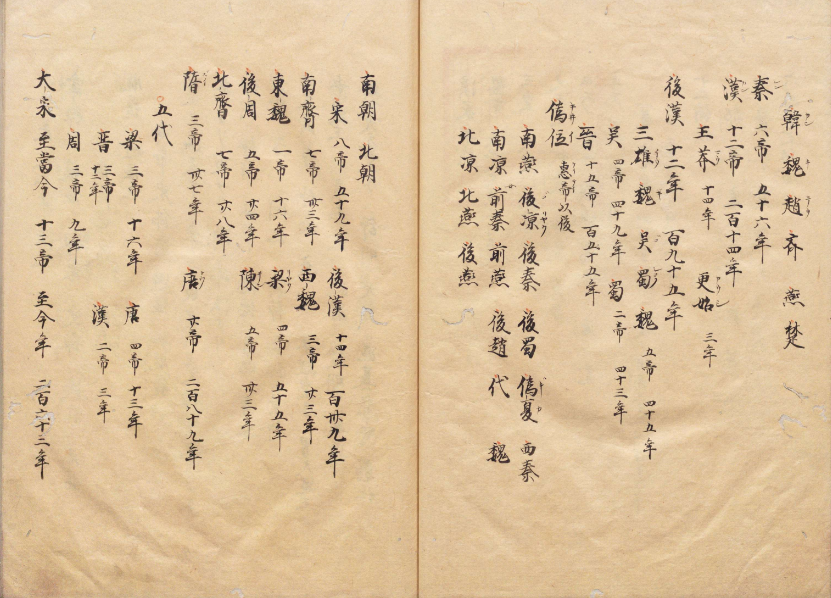 韓 魏 趙 斉 燕 楚
秦 六帝 五十六年
漢 十二帝 二百十四年
王莽 十四年 更始 三年
後漢 十二年 百九十五年
三雄 魏 吴 蜀 魏 五帝 四十五年
吴 四帝 四十九年 蜀 二帝 四十三年
晉 十五帝 百五十五年
偽位 惠帝以後
南燕 後凉 後秦 後蜀 偽夏 西秦
南凉 前秦 前燕 後趙 代 魏
北凉 北燕 後燕
南朝 北朝
宋 八帝 五十九年 後漢 十四年 百卌九年
南齊 七帝 廿三年 西魏 三帝 廿三年
東魏 一帝 十六年 梁 四帝 五十五年
後周 五帝 廿四年 陳 五帝 卅三年
北齊 七帝 廿八年
隋 三帝 卅七年 唐 廿帝 二百八十九年
五代
梁 三帝 十六年 唐 四帝 十三年
晋 三帝 十二年 漢 二帝 三年
周 三帝 九年
大宋 至當今 十三帝 至今年 二百六十三年